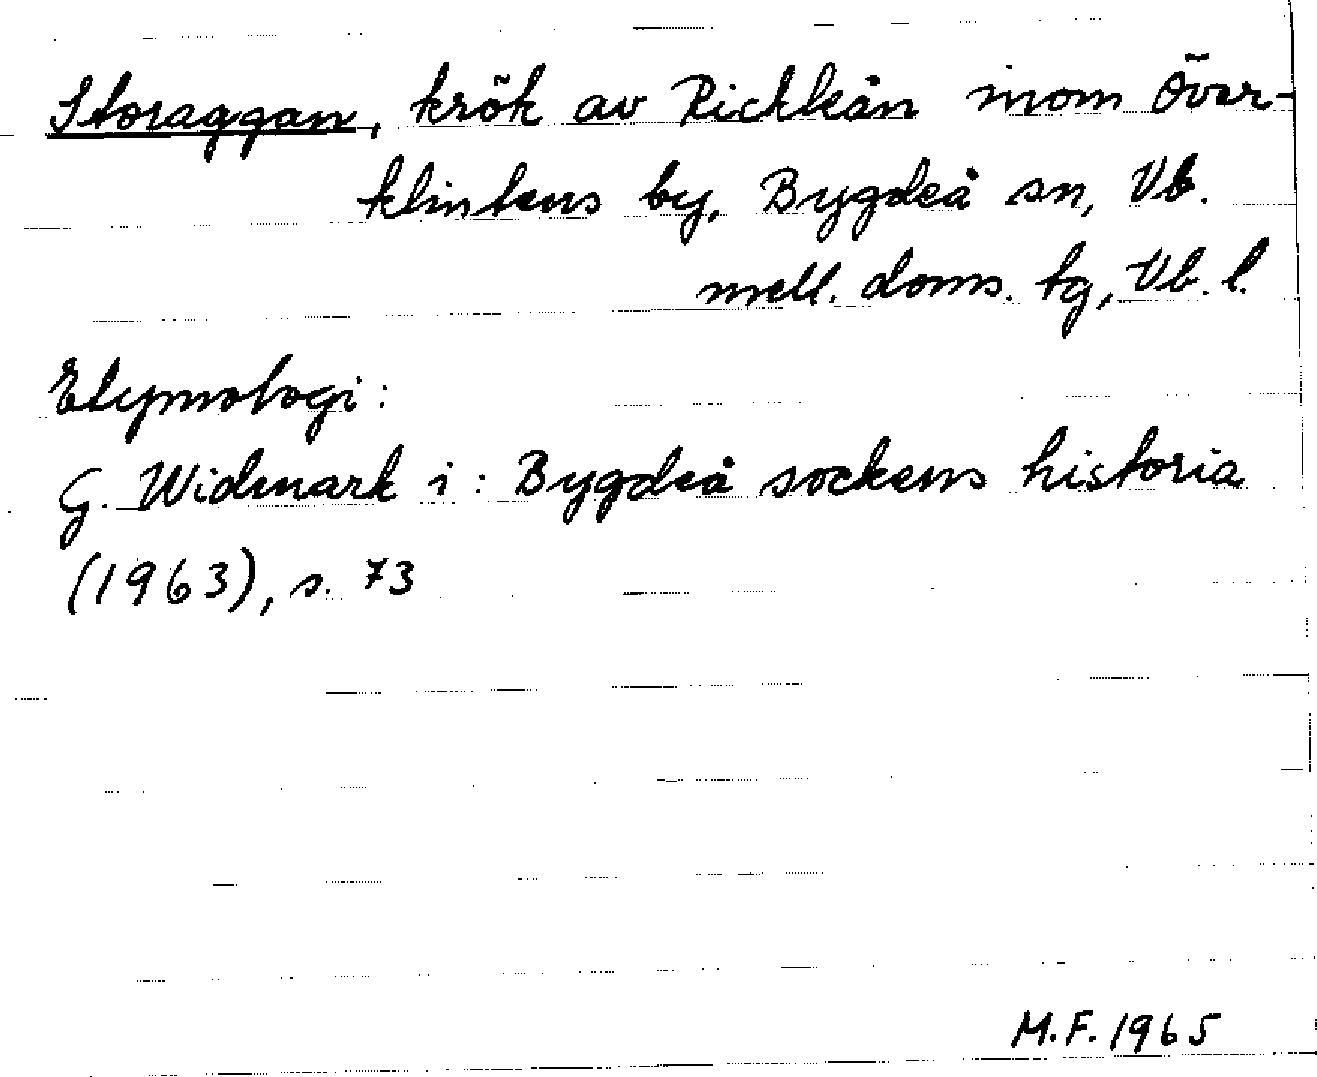 Storaggan, krök av Rickleån inom Över-
klintens by, Bygdeå sn, Vb.
mell. doms. tg, Vb. l.
Etymologi:
G. Widmark i: Bygdeå sockens historia
(1963), s. 73
M.F. 1965